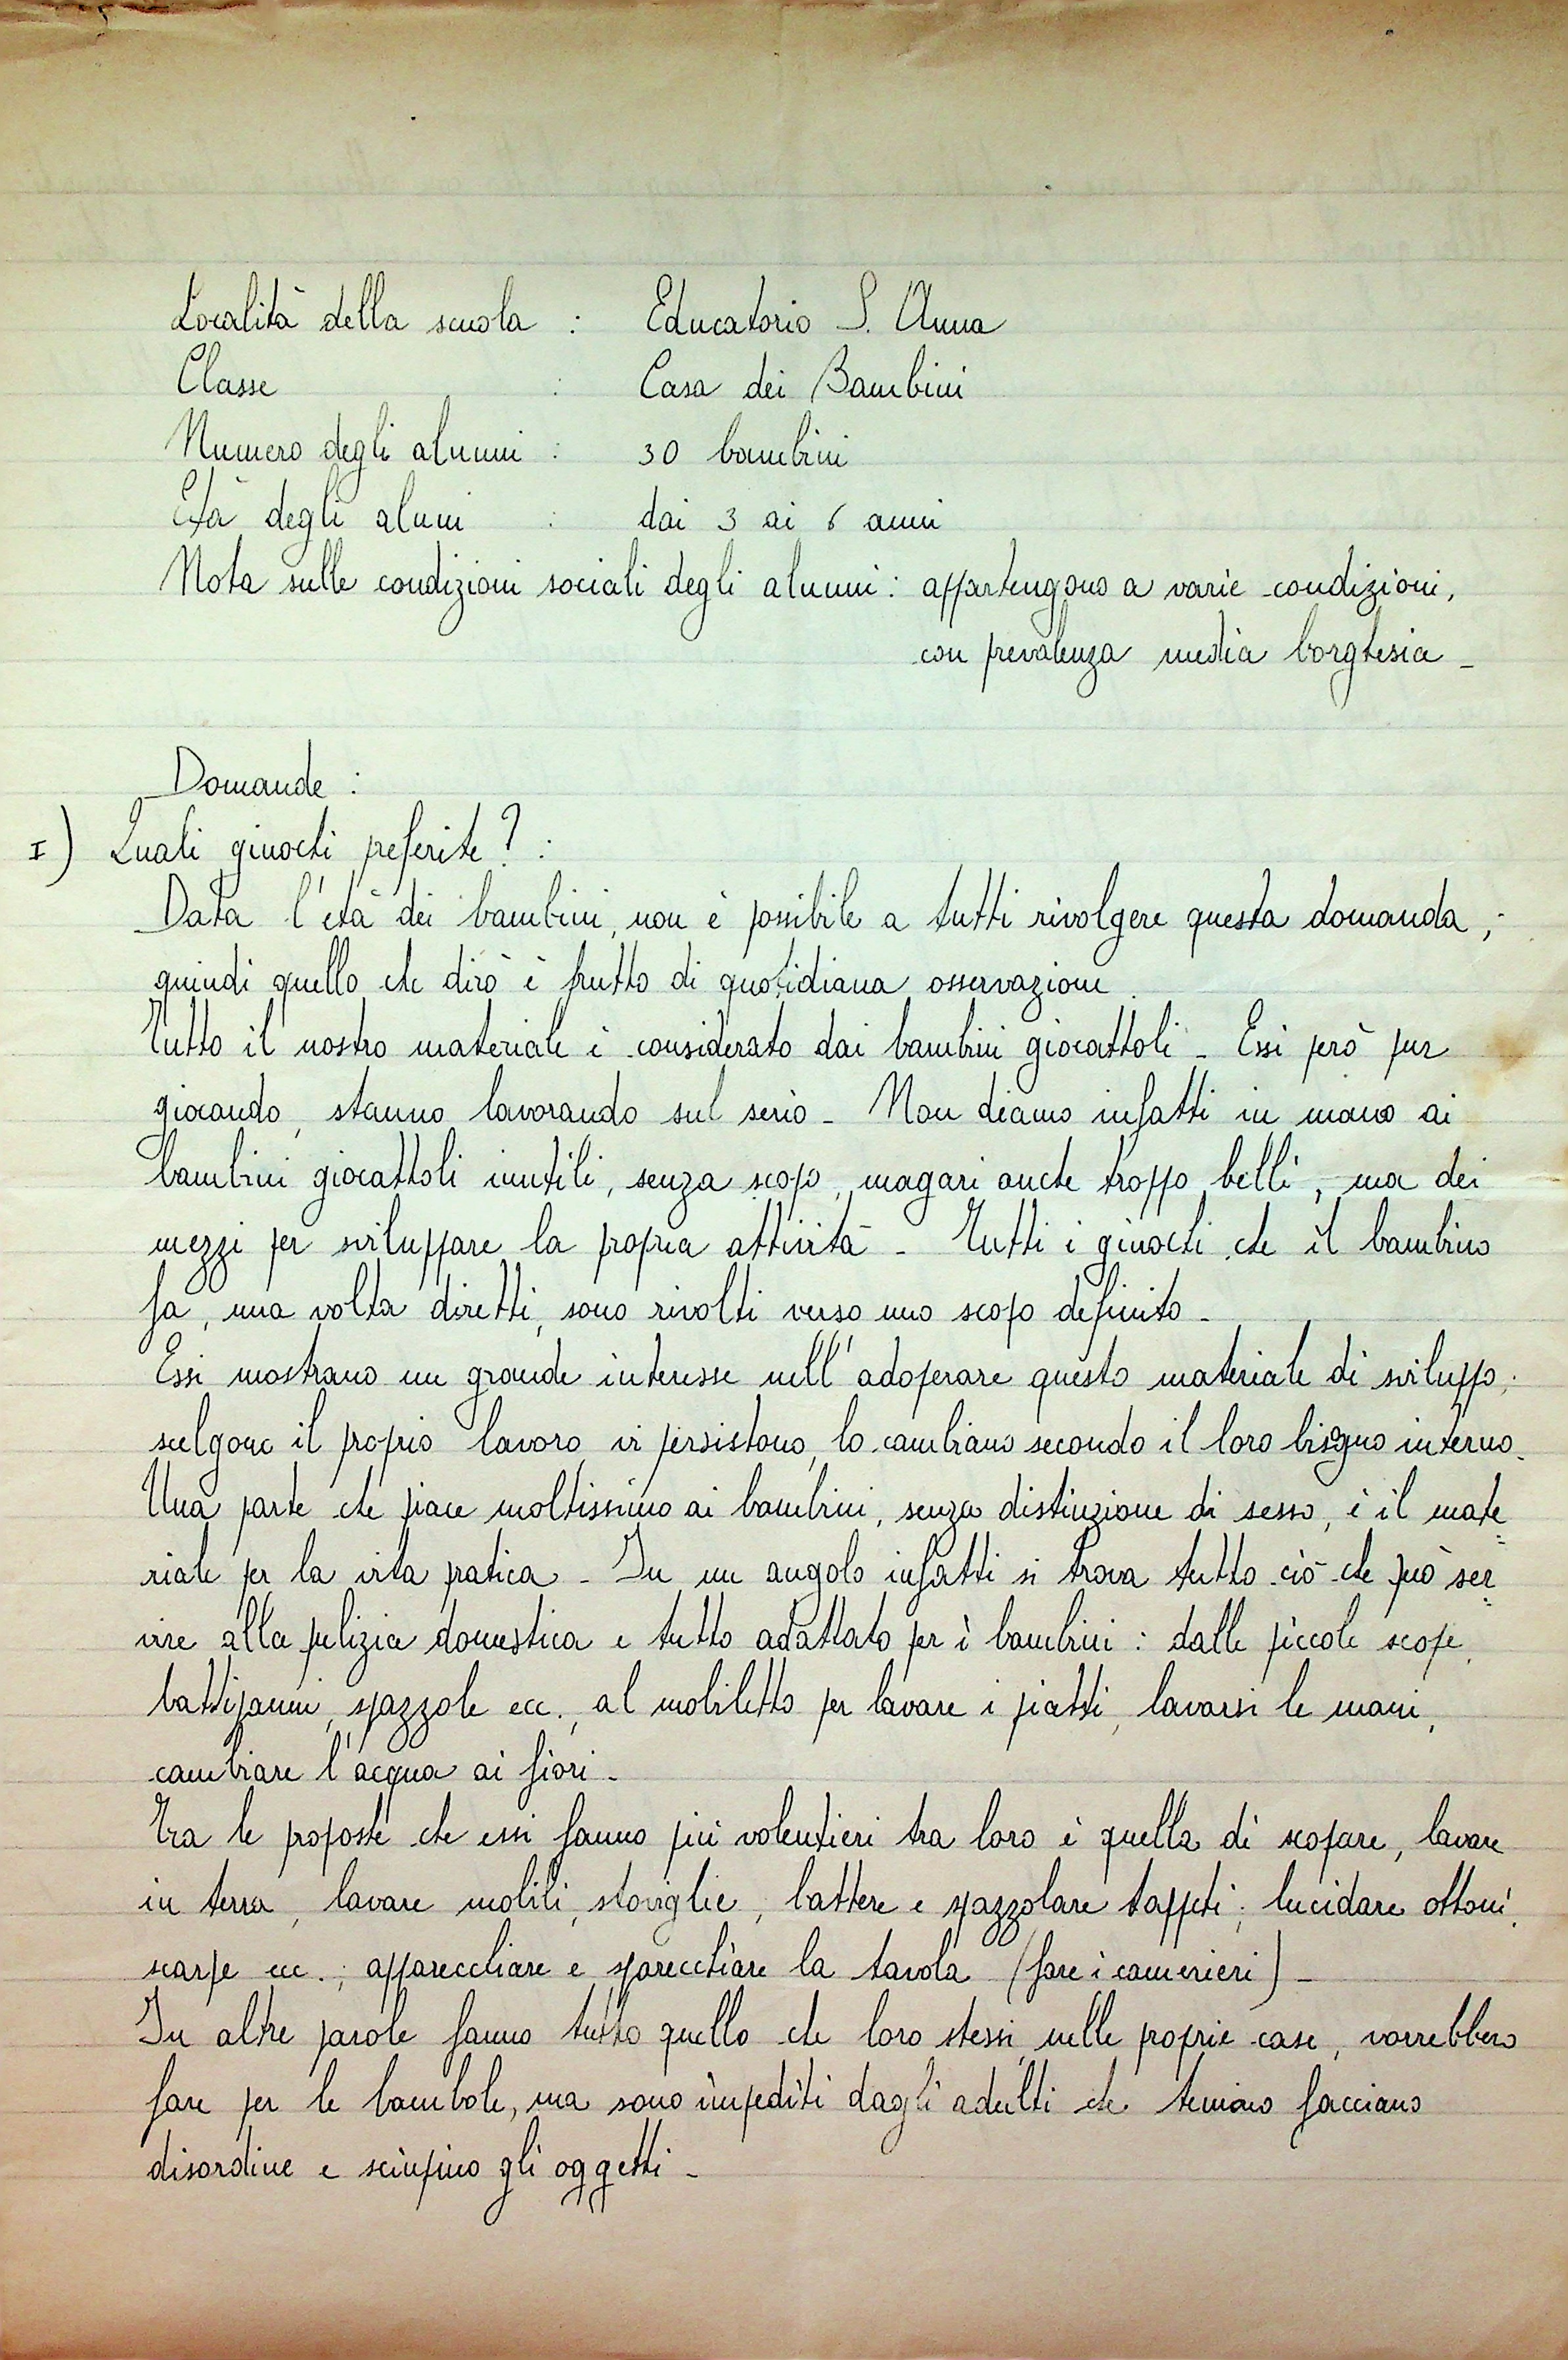 Località della scuola : Educatorio S. Anna
Classe : Casa dei Bambini
Numero degli alunni : 30 bambini
Età degli aluni : dai 3 ai 6 anni
Nota sulle condizioni sociali degli alunni : appartengono a varie condizioni,
con prevalenza media borghesia -
Domande :
I) Quali giuochi preferite? :
Data l'età dei bambini, non è possibile a tutti rivolgere questa domanda ;
quindi quello che dirò è frutto di quotidiana osservazione.
Tutto il nostro materiale è considerato dai bambini giocattoli - Essi però pur
giocando, stanno lavorando sul serio - Non diamo infatti in mano ai
bambini giocattoli inutili, senza scopo, magari anche troppo belli, ma dei
mezzi per sviluppare la propria attività - Tutti i giuochi che il bambino
fa, una volta diretti, sono rivolti verso uno scopo definito -
Essi mostrano un grande interesse nell'adoperare questo materiale di sviluppo ;
scelgono il proprio lavoro, vi persistono, lo cambiano secondo il loro bisogno interno -
Una parte che piace moltissimo ai bambini, senza distinzione di sesso, è il mate=
riale per la vita pratica - In un angolo infatti si trova tutto ciò che può ser=
vire alla pulizia domestica e tutto adattato per i bambini : dalle piccole scope,
battipanni, spazzole ecc., al mobiletto per lavare i piatti, lavarsi le mani,
cambiare l'acqua ai fiori -
Tra le proposte che essi fanno più volentieri tra loro è quella di scopare, lavare
in terra, lavare mobili, stoviglie, battere e spazzolare tappeti ; lucidare ottoni,
scarpe ecc. ; apparecchiare e sparecchiare la tavola (fare i camerieri) -
In altre parole fanno tutto quello che loro stessi, nelle proprie case, vorrebbero
fare per le bambole, ma sono impediti dagli adulti che temono facciano
disordine e sciupino gli oggetti -